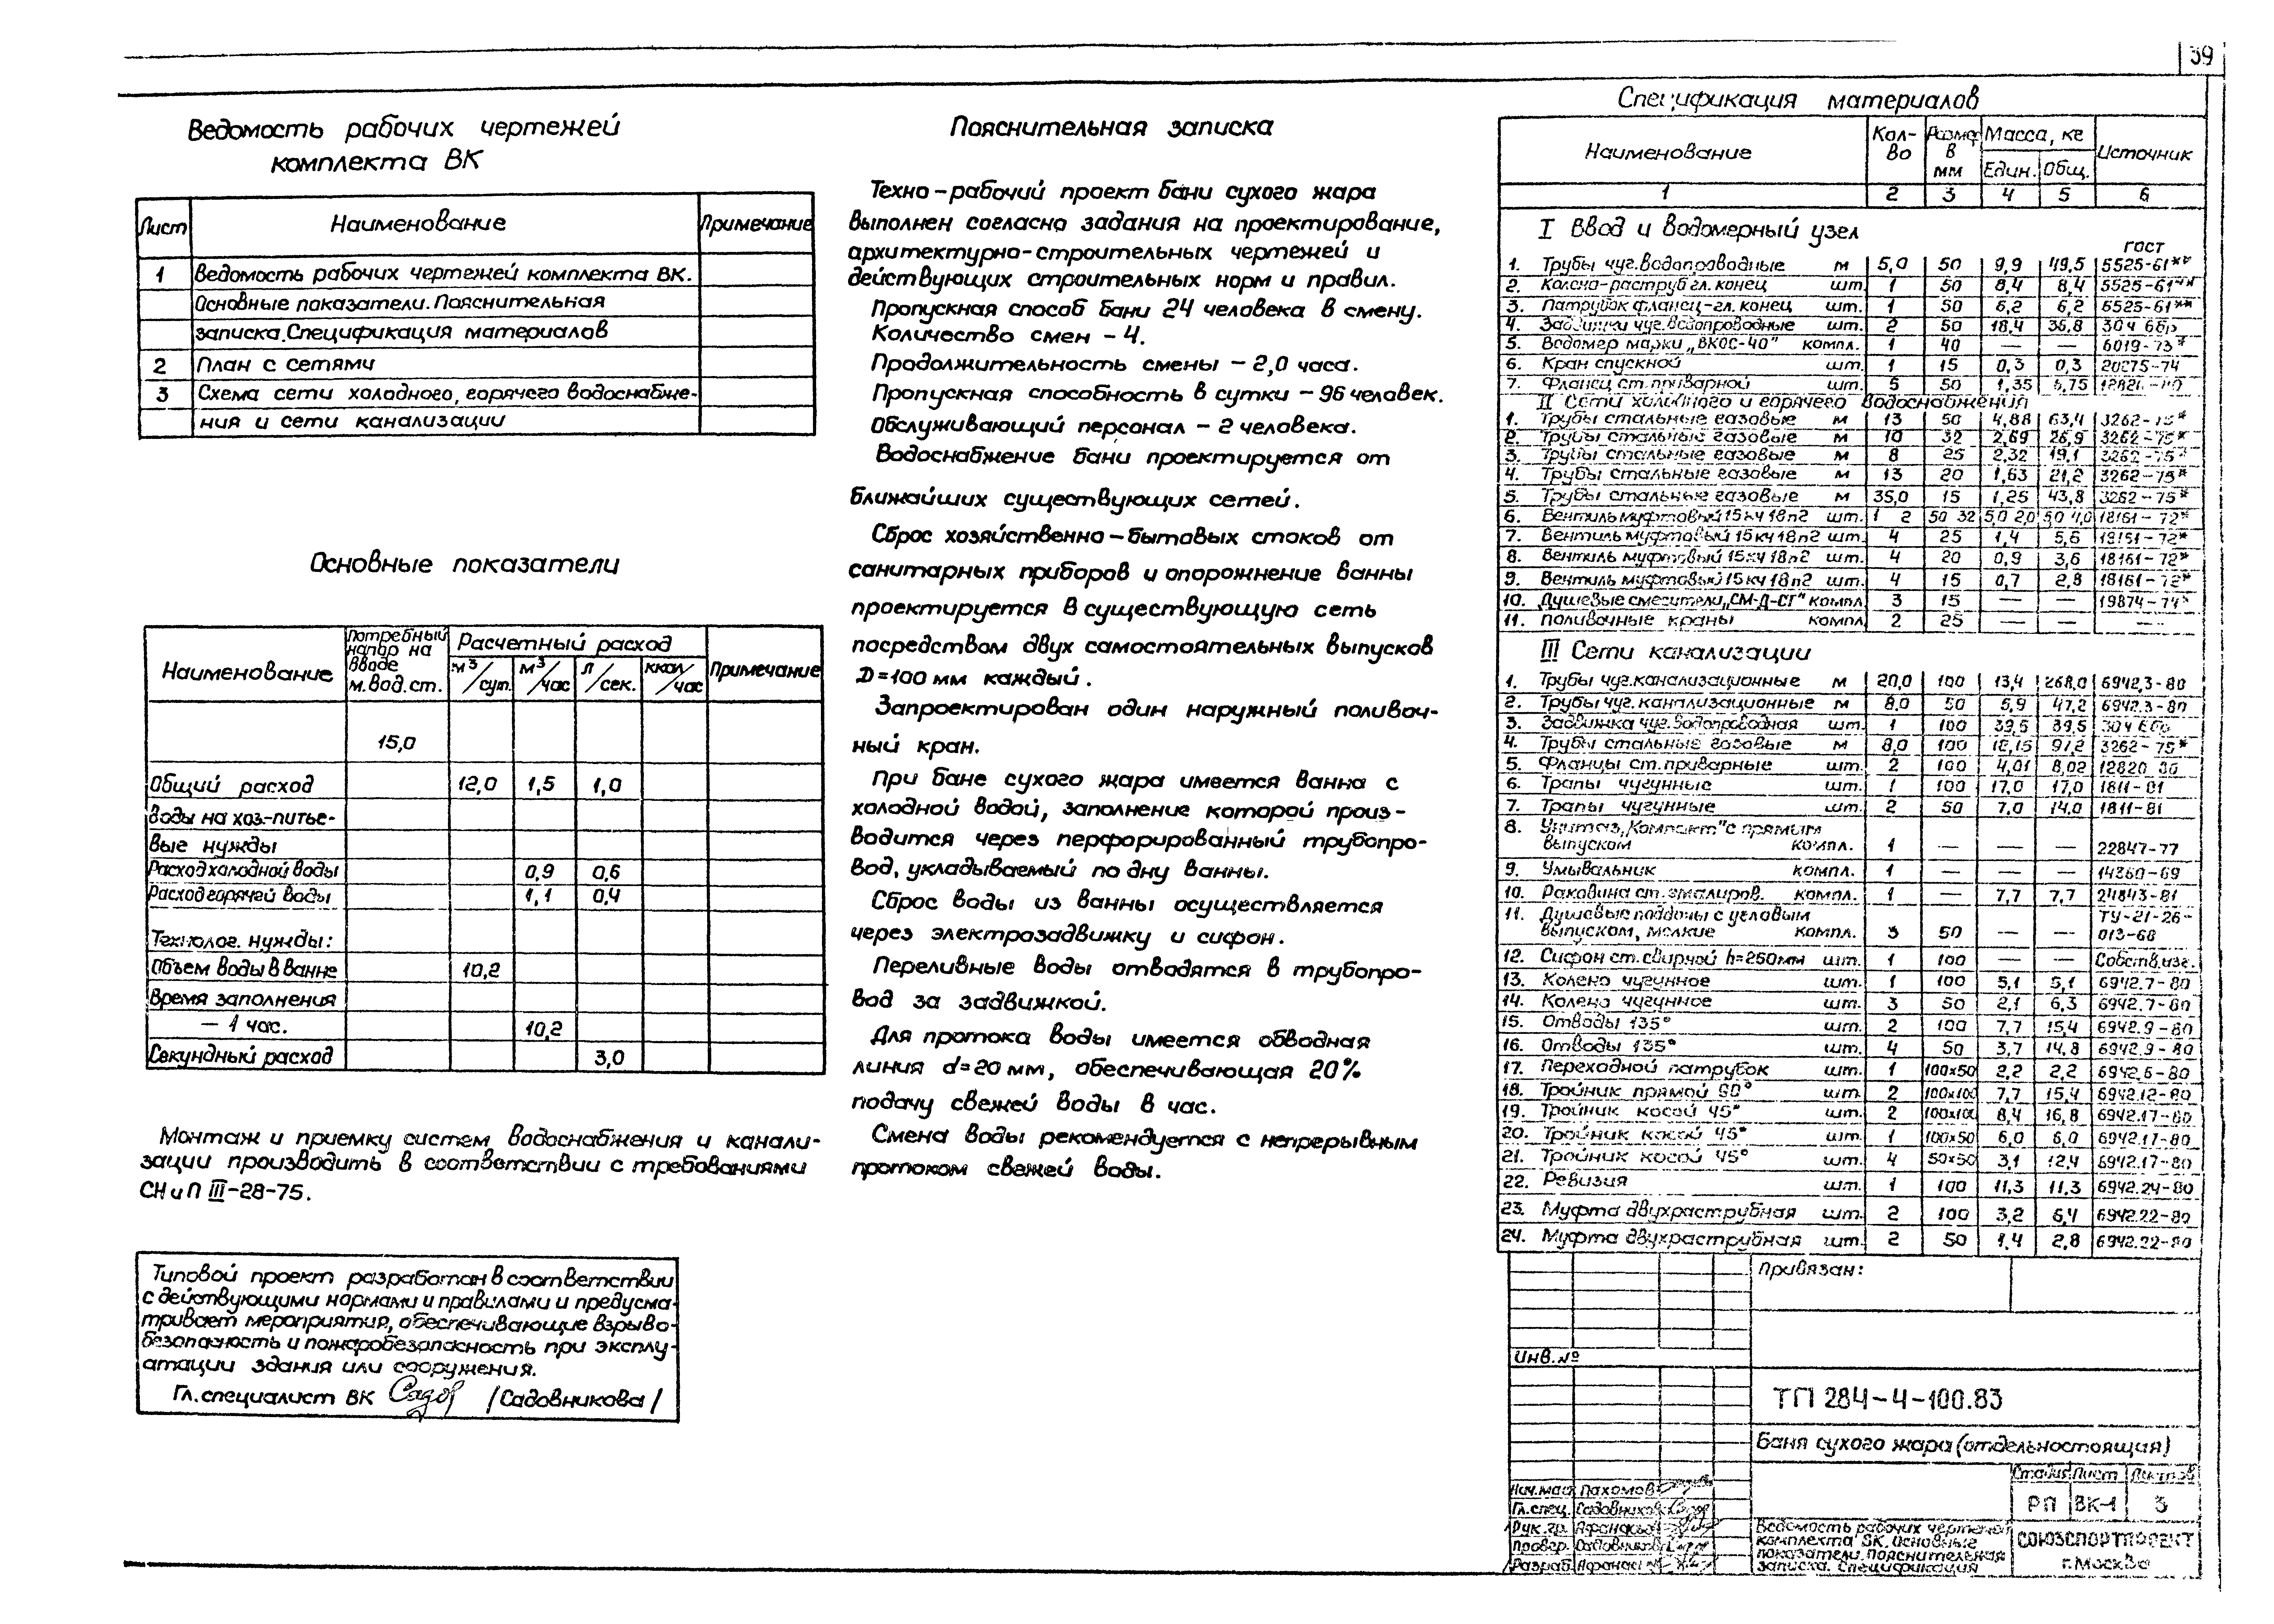 39
Ведомость рабочих чертежей
комплекта ВК
Лист Наименование Примечание
1 Ведомость рабочих чертежей комплекта ВК.
Основные показатели. Пояснительная
записка. Спецификация материалов
2 План с сетями
3 Схема сети холодного, горячего водоснабже-
ния и сети канализации
Основные показатели
Наименование Потребный напор на вводе м.вод.ст. Расчетный расход Примечание
м³/сут. м³/час л/сек. ккал/час
15,0
Общий расход 12,0 1,5 1,0
воды на хоз-питье-
вые нужды
Расход холодной воды 0,9 0,6
Расход горячей воды 1,1 0,4
Технолог. нужды:
Объем воды в ванне 10,2
Время заполнения
– 1 час. 10,2
Секундный расход 3,0
Монтаж и приемку систем водоснабжения и канали-
зации производить в соответствии с требованиями
СНиП III-28-75.
Типовой проект разработан в соответствии
с действующими нормами и правилами и предусма-
тривает мероприятия, обеспечивающие взрыво-
безопасность и пожаробезопасность при эксплу-
атации здания или сооружения.
Гл. специалист ВК /Садовникова/
Пояснительная записка
Техно-рабочий проект бани сухого жара
выполнен согласно задания на проектирование,
архитектурно-строительных чертежей и
действующих строительных норм и правил.
Пропускная способ бани 24 человека в смену.
Количество смен – 4.
Продолжительность смены – 2,0 часа.
Пропускная способность в сутки – 96 человек.
Обслуживающий персонал – 2 человека.
Водоснабжение бани проектируется от
ближайших существующих сетей.
Сброс хозяйственно-бытовых стоков от
санитарных приборов и опорожнение ванны
проектируется в существующую сеть
посредством двух самостоятельных выпусков
D=100 мм каждый.
Запроектирован один наружный поливоч-
ный кран.
При бане сухого жара имеется ванна с
холодной водой, заполнение которой произ-
водится через перфорированный трубопро-
вод, укладываемый по дну ванны.
Сброс воды из ванны осуществляется
через электрозадвижку и сифон.
Переливные воды отводятся в трубопро-
вод за задвижкой.
Для протока воды имеется обводная
линия d=20 мм, обеспечивающая 20%
подачу свежей воды в час.
Смена воды рекомендуется с непрерывным
протоком свежей воды.
Спецификация материалов
Наименование Кол-во Разме в мм Масса, кг Источник
Един. Общ.
1 2 3 4 5 6
I Ввод и водомерный узел гост
1. Трубы чуг. водопроводные м 5,0 50 9,9 49,5 5525-61**
2. Колено-раструб гл. конец шт. 1 50 8,4 8,4 5525-61**
3. Патрубок фланец-гл. конец шт. 1 50 6,2 6,2 5525-61**
4. Задвижки чуг. водопроводные шт. 2 50 18,4 36,8 30ч 6бр
5. Водомер марки „ВКОС-40" компл. 1 40 — — 6019-73*
6. Кран спускной шт. 1 15 0,3 0,3
7. Фланец ст. приварной шт. 5 50 1,35
II Сети холодного и горячего водоснабжения
1. Трубы стальные газовые м 13 50 4,88 63,4 3262-75*
2. Трубы стальные газовые м 10 32 2,69 26,9 3262-75*
3. Трубы стальные газовые м 8 25 2,32 19,1 3262-75*
4. Трубы стальные газовые м 13 20 1,63 21,2 3262-75*
5. Трубы стальные газовые м 35,0 15 1,25 43,8 3262-75*
6. Вентиль муфтовый 15кч 18п2 шт. 1 2 50 32 5,0 2,0 5,0 4,0 18161-72*
7. Вентиль муфтовый 15кч 18п2 шт. 4 25 1,4 5,6 18161-72*
8. Вентиль муфтовый 15кч 18п2 шт. 4 20 0,9 3,6 18161-72*
9. Вентиль муфтовый 15кч 18п2 шт. 4 15 0,7 2,8 18161-72*
10. Душевые смесители „СМ-Д-СТ" компл 3 15 — — 19874-74*
11. Поливочные краны компл 2 25 — — —
III Сети канализации
1. Трубы чуг. канализационные м 20,0 100 13,4 268,0 6942.3-80
2. Трубы чуг. канализационные м 8,0 50 5,9 47,2 6942.3-80
3. Задвижка чуг. водопроводная шт. 1 100 39,5 39,5 30ч 6бр
4. Трубы стальные газовые м 8,0 100 12,15 97,2 3262-75*
5. Фланцы ст. приварные шт. 2 100 4,01 8,02 12820-80
6. Трапы чугунные шт. 1 100 17,0 17,0 1811-81
7. Трапы чугунные шт. 2 50 7,0 14,0 1811-81
8. Унитаз „Компакт" с прямым
выпуском компл. 1 — — — 22847-77
9. Умывальник компл. 1 — — — 14360-69
10. Раковина ст. эмалиров. компл. 1 — 7,7 7,7 24843-81
11. Душевые поддоны с угловым ТУ-21-26-
выпуском, мелкие компл. 3 50 — — 013-68
12. Сифон ст. сварной h=250мм шт. 1 100 — — Собств.изг.
13. Колено чугунное шт. 1 100 5,1 5,1 6942.7-80
14. Колено чугунное шт. 3 50 2,1 6,3 6942.7-80
15. Отводы 135° шт. 2 100 7,7 15,4 6942.9-80
16. Отводы 135° шт. 4 50 3,7 14,8 6942.9-80
17. Переходной патрубок шт. 1 100х50 2,2 2,2 6942.6-80
18. Тройник прямой 90° шт. 2 100х100 7,7 15,4 6942.12-80
19. Тройник косой 45° шт. 2 100х100 8,4 16,8 6942.17-80
20. Тройник косой 45° шт. 1 100х50 6,0 6,0 6942.17-80
21. Тройник косой 45° шт. 4 50х50 3,1 12,4 6942.17-80
22. Ревизия шт. 1 100 11,3 11,3 6942.24-80
23. Муфта двухраструбная шт. 2 100 3,2 6,4 6942.22-80
24. Муфта двухраструбная шт. 2 50 1,4 2,8 6942.22-80
Привязан:
Инв. №
ТП 284-4-100.83
Баня сухого жара (отдельностоящая)
Стадия Лист Листов
РП ВК-1 3
Нач.маст Пахомов
Гл.спец. Садовников
Рук.гр.
Провер. Садовников
Разраб.
Ведомость рабочих чертежей
комплекта ВК. Основные
показатели. Пояснительная
записка. Спецификация
СОЮЗСПОРТПРОЕКТ
г.Москва